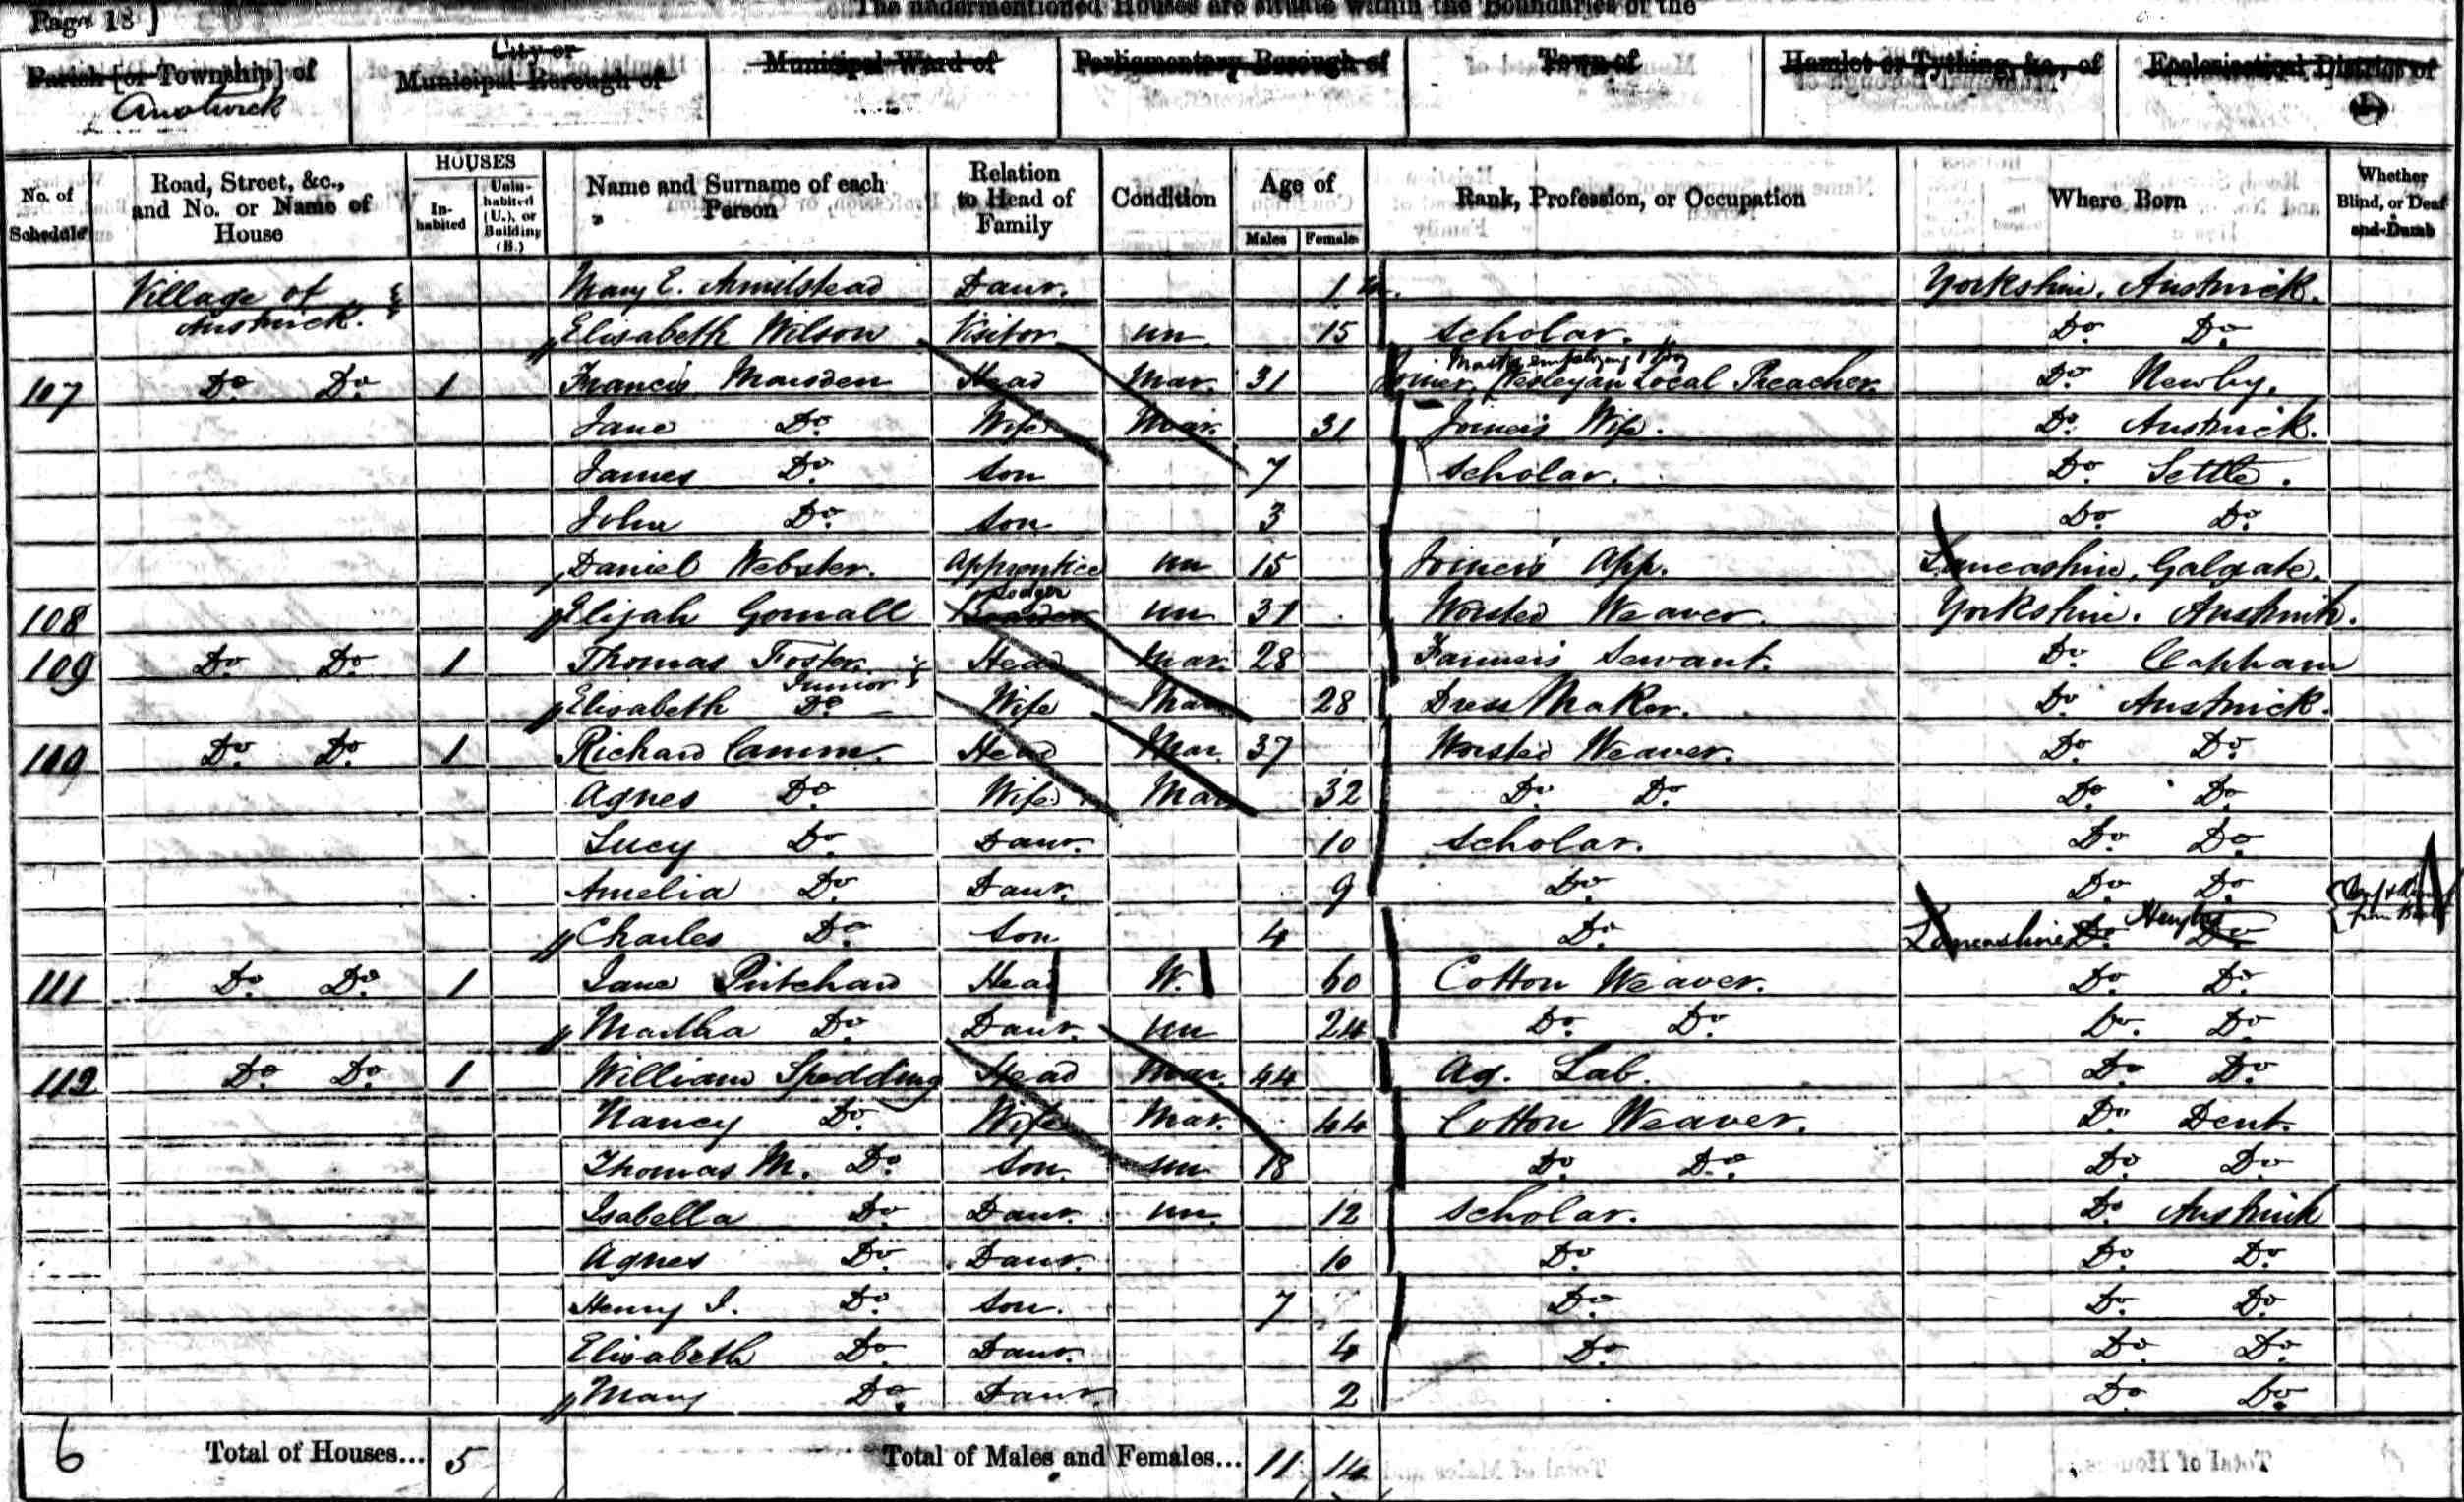 Page 18]
The undermentioned Houses are situate within the Boundaries of the
Parish [or Township] of
Austwick
City or
Municipal Borough of
Municipal Ward of
Parliamentary Borough of
Town of
Hamlet or Tything, &c., of
Ecclesiastical District of
No. of Schedule
Road, Street, &c., and No. or Name of House
HOUSES
In-habited
Unin-habited (U.), or Building (B.)
Name and Surname of each Person
Relation to Head of Family
Condition
Age of
Males
Females
Rank, Profession, or Occupation
Where Born
Whether Blind, or Deaf-and-Dumb
Village of Austwick. Mary E. Armitstead Daur. 1 Yorkshire. Austwick.
Elisabeth Wilson Visitor un. 15 Scholar. Do. Do.
107 Do. Do. 1 Francis Marsden Head Mar. 31 Joiner, Master employing 1 Boy Wesleyan Local Preacher. Do. Newby.
Jane Do. Wife Mar. 31 Joiner's Wife. Do. Austwick.
James Do. Son 7 Scholar. Do. Settle.
John Do. Son 3 Do. Do.
Daniel Webster. Apprentice un 15 Joiner's App. Lancashire, Galgate.
108 Elijah Gornall Lodger un 31 Worsted Weaver. Yorkshire. Austwick.
109 Do. Do. 1 Thomas Foster Junior Head Mar. 28 Farmer's Servant. Do. Clapham
Elisabeth Do. Wife Mar 28 Dress Maker. Do. Austwick.
109 Do. Do. 1 Richard Camm. Head Mar. 37 Worsted Weaver. Do. Do.
Agnes Do. Wife Mar 32 Do. Do. Do. Do.
Lucy Do. Daur. 10 Scholar. Do. Do.
Amelia Do. Daur. 9 Do. Do. Do.
Charles Do. Son 4 Do. Lancashire Do. Do.
111 Do. Do. 1 Jane Pritchard Head W. 60 Cotton Weaver. Do. Do.
Martha Do. Daur. un 24 Do. Do. Do. Do.
112 Do. Do. 1 William Spedding Head Mar. 44 Ag. Lab. Do. Do.
Nancy Do. Wife Mar. 44 Cotton Weaver. Do. Dent.
Thomas M. Do. Son. un 18 Do. Do. Do. Do.
Isabella Do. Daur. un. 12 Scholar. Do. Austwick
Agnes Do. Daur. 10 Do. Do. Do.
Henry I. Do. Son. 7 Do. Do. Do.
Elisabeth Do. Daur. 4 Do. Do. Do.
Mary Do. Daur 2 Do. Do.
6 Total of Houses... 5 Total of Males and Females... 11 14